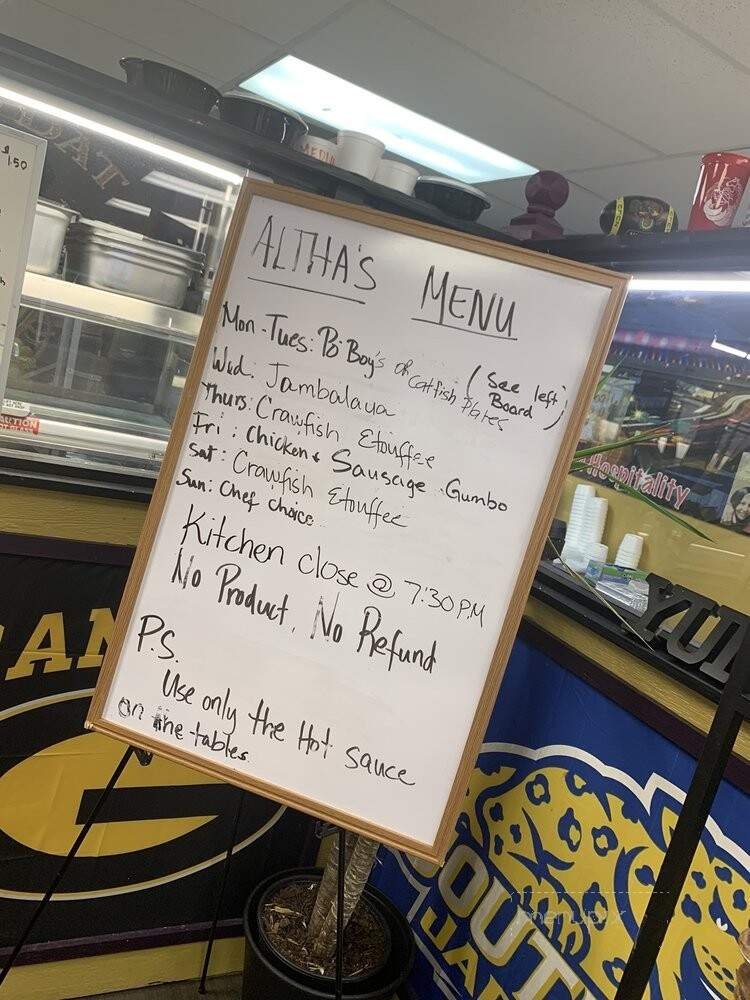 ALTHA'S MENU
Mon-Tues: Po Boy's or Catfish Plates (See left Board)
Wed: Jambalaya
Thurs: Crawfish Etouffee
Fri: Chicken & Sauscige Gumbo
Sat: Crawfish Etouffee
Sun: Chef choice
Kitchen close @ 7:30 P.M
No Product, No Refund
P.S.
Use only the Hot sauce
on the tables.
1.50
DAT
MEDIU
CAUTION
Hospitality
YUM
G
SOUT
JA
menupix